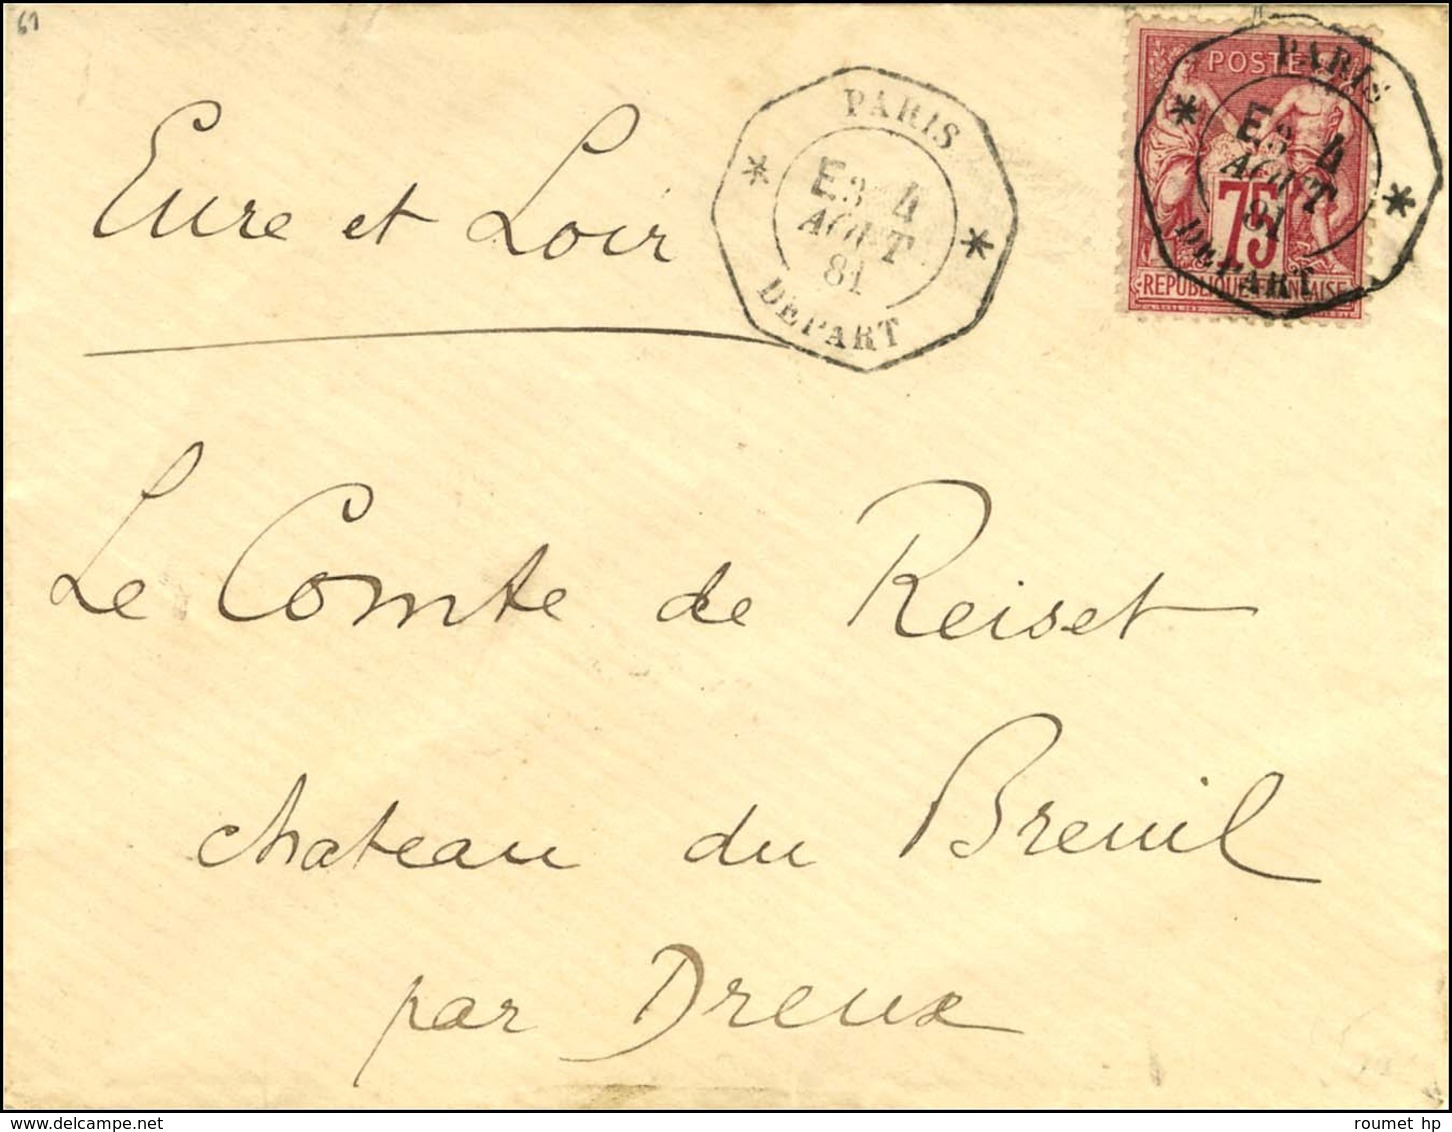 61
Eure et Loir
PARIS
E3 4
AOUT
81
DEPART
POSTE
PARIS
E3 4
AOUT
81
75
DEPART
REPUBLIQUE FRANCAISE
Le Comte de Reiset
chateau du Breuil
par Dreux
roumet hp